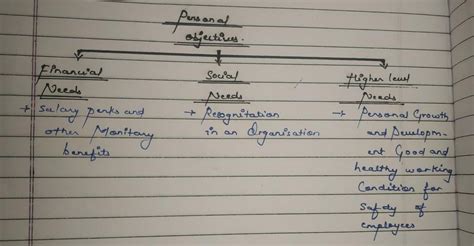 Personal
objectives.
Financial
Needs
→ Salary perks and
other Monitary
benefits
Social
Needs
→ Recognitation
in an Organisation
Higher level
Needs
→ Personal Growth
and Developm-
ent Good and
healthy working
Condition for
Safdy of
employees